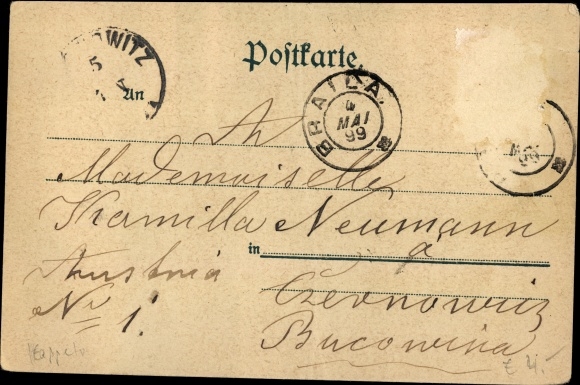 Postkarte.
OWITZ
5
An
BRAILA
4
MAI
99
A
Mademoiselle
Kamilla Neumann
in
à
Austria
Czernowitz
No 1.
Bucowina